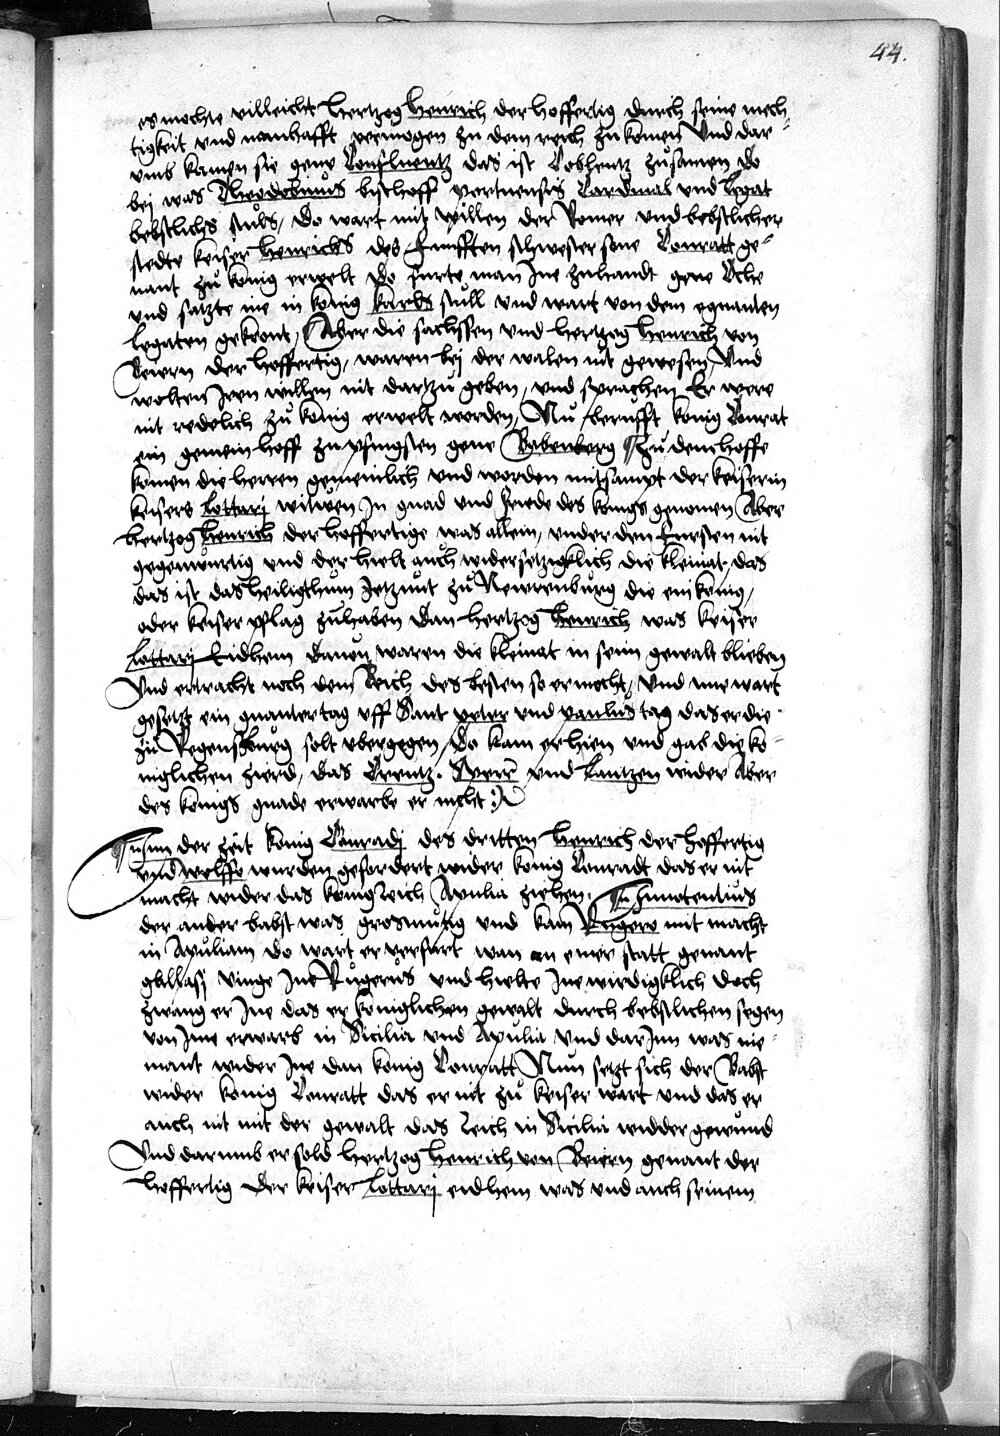 44.
es mochte villeicht hertzog Henrich der hoffertig durch seine mech
tigkeit vnd manhafft vermogen zu dem reich zu komen Vnd dar-
vmb kamen sie gene Confluentz das ist Coblentz zusamen do
bej was Theodebinus bischoff portuensis Cardinal vnd legat
bebstlichs stuls, do wart mit willen der Romer vnd bebstlicher
stedte keiser Henrichs des funfften schwester sone Conratt ge-
nant zu konig erwelt do furte man Jne zuhandt gene Ache
vnd satzte ine in konig karls stull vnd wart von dem egnanten
legaten gekront, Aber die sachssen vnd hertzog Henrich von
Beiern der hoffertig, waren bej der walen nit gewesen, Vnd
wolten Jren willen nit dartzu geben, vnd sprachen Er were
nit redelich zu konig erwelt worden, Nu berufft konig Conrat
ein gemein hoff zu pfingsten gene Babenberg Zu dem hoffe
komen die herren gemeinlich vnd worden mitsampt der keiserin
keisers lottarj witwen Jn gnad vnd friede des konigs genomen Aber
hertzog Henrich der hoffertige was allein, vnder den fursten nit
gegenwurtig vnd der hielt auch widersetzigklich die kleinat, das
das ist das heiligthum Jetzunt zu Newrenburg die ein konig,
oder keiser pflag zuhaben dan hertzog Henrich was keiser
lottarj Eidhem dauon waren die kleinat in seim gewalt blieben
Vnd ertracht noch dem Reich des besten so er mocht, Vnd ime wart
gesetzt ein gnanter tag vff Sant peter vnd paulus tag das er die
zu Regenspurg solt vbergegen, do kam er hien vnd gab die ko-
niglichen zierd, das Creutz. Sperr vnd Lantzen wider Aber
des konigs gnade erwarbe er nicht
In der zeit konig Conradj des dritten Henrich der hoffertig
vnd welffe wurden gefordert wider konig Conradt das er nit
macht wider das konigreich Apulia ziehen. Innotentius
der ander babst was grosmutig vnd kam Rugero mit macht
in Apuliam do wart er verfurt wan an einer statt genant
vinge Jne Rugerus vnd hielte Jne wirdigklich doch
zwang er Jne das er koniglichen gewalt durch bebstlichen segen
von Jme erwarb in Sicilia vnd Apulia vnd dar Jnn was nie-
mant wider Jne dan konig Conratt Nun setzt sich der Babst
wider konig Conratt das er nit zu keiser wart vnd das er
auch nit mit der gewalt das Reich in Sicilia widder gewund
Vnd darumb er sold hertzog Henrich von Beiern genant der
hoffertig der keiser lottarj eidhem was vnd auch seinem